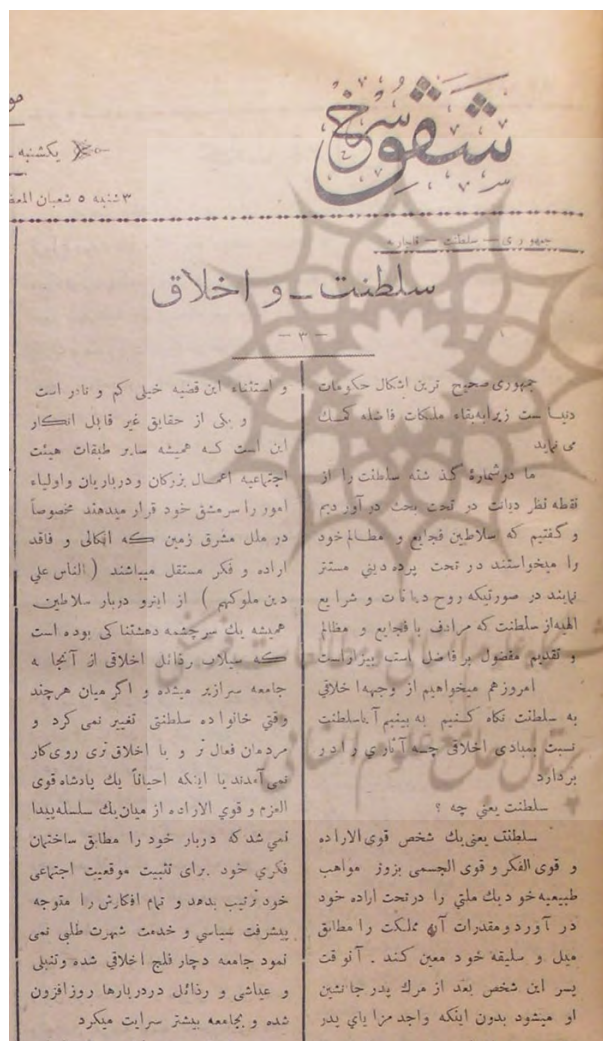 شفق سرخ
یکشنبه
۳ شنبه ۵ شعبان المعظ
جمهوری — سلطنت — قاجاریه
سلطنت ـ و اخلاق
— ۳ —
جمهوری صحیح ترین اشکال حکومات
دنیا ست زیرا به بقاء ملکات فاضله کمک
می نماید
ما در شمارهٔ گذ شته سلطنت را از
نقطه نظر دیانت در تحت بحث در آور دیم
و گفتیم که سلاطین فجایع و مظالم خود
را میخواستند در تحت پرده دینی مستتر
نمایند در صورتیکه روح دیانات و شرایع
الهیه از سلطنت که مرادف با فجایع و مظالم
و تقدیم مفضول بر فاضل است بیزار است
امروز هم میخواهیم از وجهه اخلاقی
به سلطنت نگاه کنیم به بینیم آیا سلطنت
نسبت بمبادی اخلاقی چه آثاری را در
بردارد
سلطنت یعنی چه ؟
سلطنت یعنی یك شخص قوی الاراده
و قوی الفکر و قوی الجسمی بزور مواهب
طبیعیه خود یك ملتی را در تحت اراده خود
در آورد و مقدرات آن مملکت را مطابق
میل و سلیقه خود معین کند . آنوقت
پسر این شخص بعد از مرك پدر جانشین
او میشود بدون اینکه واجد مزایای پدر
و استثناء این قضیه خیلی کم و نادر است
و یکی از حقایق غیر قابل انکار
این است که همیشه سایر طبقات هیئت
اجتماعیه اعمال بزرکان و درباریان و اولیاء
امور را سرمشق خود قرار میدهند مخصوصاً
در ملل مشرق زمین که اتکالی و فاقد
اراده و فکر مستقل میباشند ( الناس علی
دین ملوکهم ) از اینرو دربار سلاطین
همیشه یك سر چشمه دهشتناکی بوده است
که سیلاب رذائل اخلاقی از آنجا به
جامعه سرازیر میشده و اگر میان هرچند
وقتی خانواده سلطنتی تغییر نمی کرد و
مردمان فعال تر و با اخلاق تری روی کار
نمی آمدند یا اینکه احیاناً یك پادشاه قوی
العزم و قوی الاراده از میان یك سلسله پیدا
نمی شد که دربار خود را مطابق ساختمان
فکری خود برای تثبیت موقعیت اجتماعی
خود ترتیب بدهد و تمام افکارش را متوجه
پیشرفت سیاسی و خدمت شهرت طلبی نمی
نمود جامعه دچار فلج اخلاقی شده و تنبلی
و عیاشی و رذائل در دربارها روز افزون
شده و بجامعه بیشتر سرایت میکرد